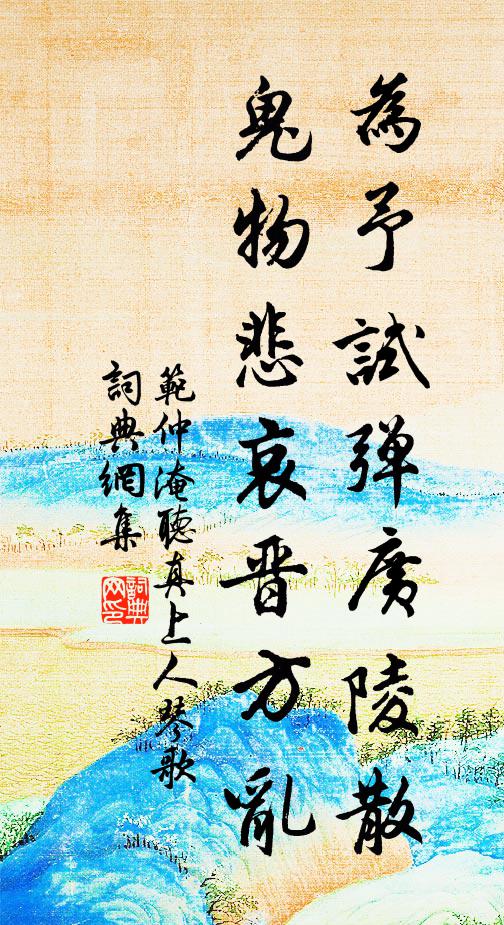 為予試弹廣陵散
鬼物悲哀晋方亂
範仲淹聽真上人琴歌
詞典網集